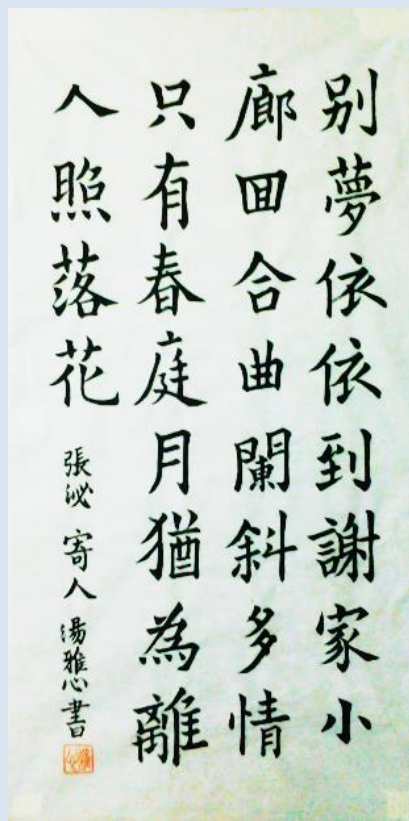 别夢依依到謝家小
廊囬合曲闌斜多情
只有春庭月猶為離
人照落花
張泌 寄人 湯雅心書